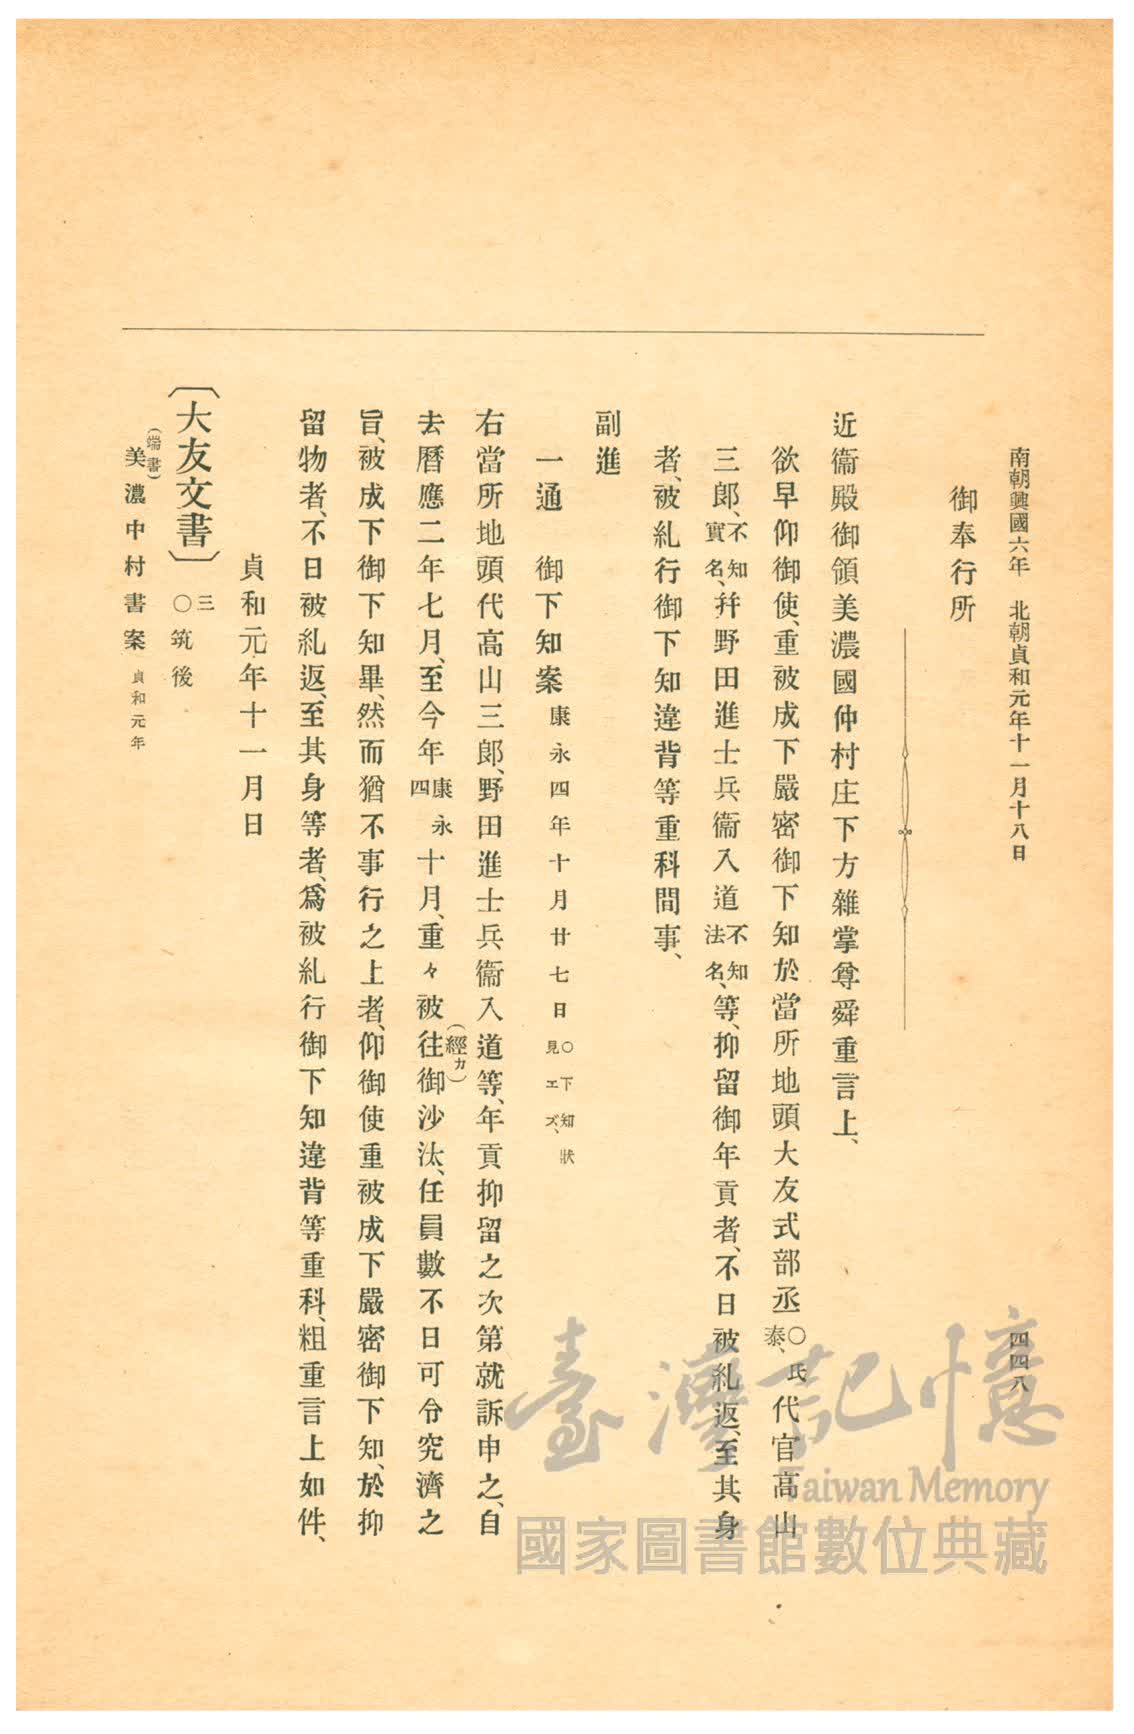 南朝興國六年　北朝貞和元年十一月十八日　四四八
御奉行所
近衞殿御領美濃國仲村庄下方雜掌尊舜重言上、
欲早仰御使、重被成下嚴密御下知於當所地頭大友式部丞〇氏泰、代官高山
三郎、不知實名、幷野田進士兵衞入道不知法名、等、抑留御年貢者、不日被糺返、至其身
者、被糺行御下知違背等重科間事、
副進
一通　御下知案康永四年十月廿七日〇下知狀見エズ、
右當所地頭代高山三郎、野田進士兵衞入道等、年貢抑留之次第就訴申之、自
去曆應二年七月、至今年康永四十月、重々被往(經カ)御沙汰、任員數不日可令究濟之
旨、被成下御下知畢、然而猶不事行之上者、仰御使重被成下嚴密御下知、於抑
留物者、不日被糺返、至其身等者、爲被糺行御下知違背等重科、粗重言上如件、
貞和元年十一月日
〔大友文書〕三〇筑後
(端書)
美濃中村書案貞和元年
臺灣記憶
Taiwan Memory
國家圖書館數位典藏